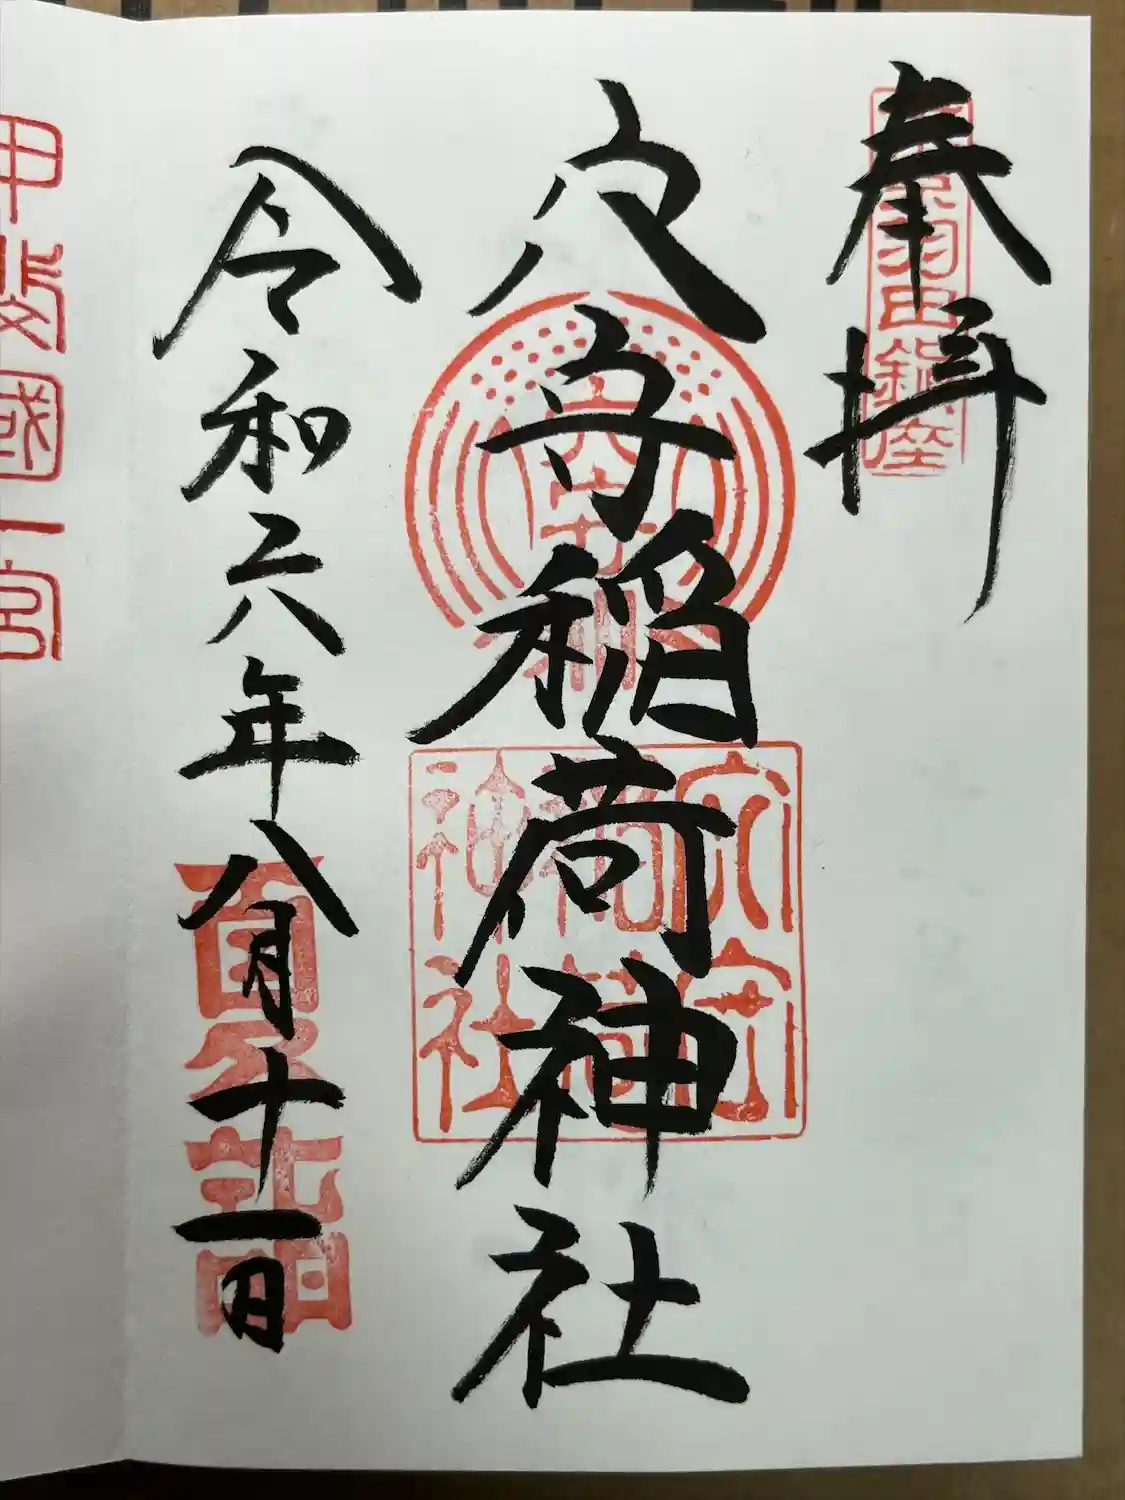 奉拝
羽田鎮座
穴守稲荷神社
穴守
稲荷
神社
令和六年八月十一日
甲斐國一宮